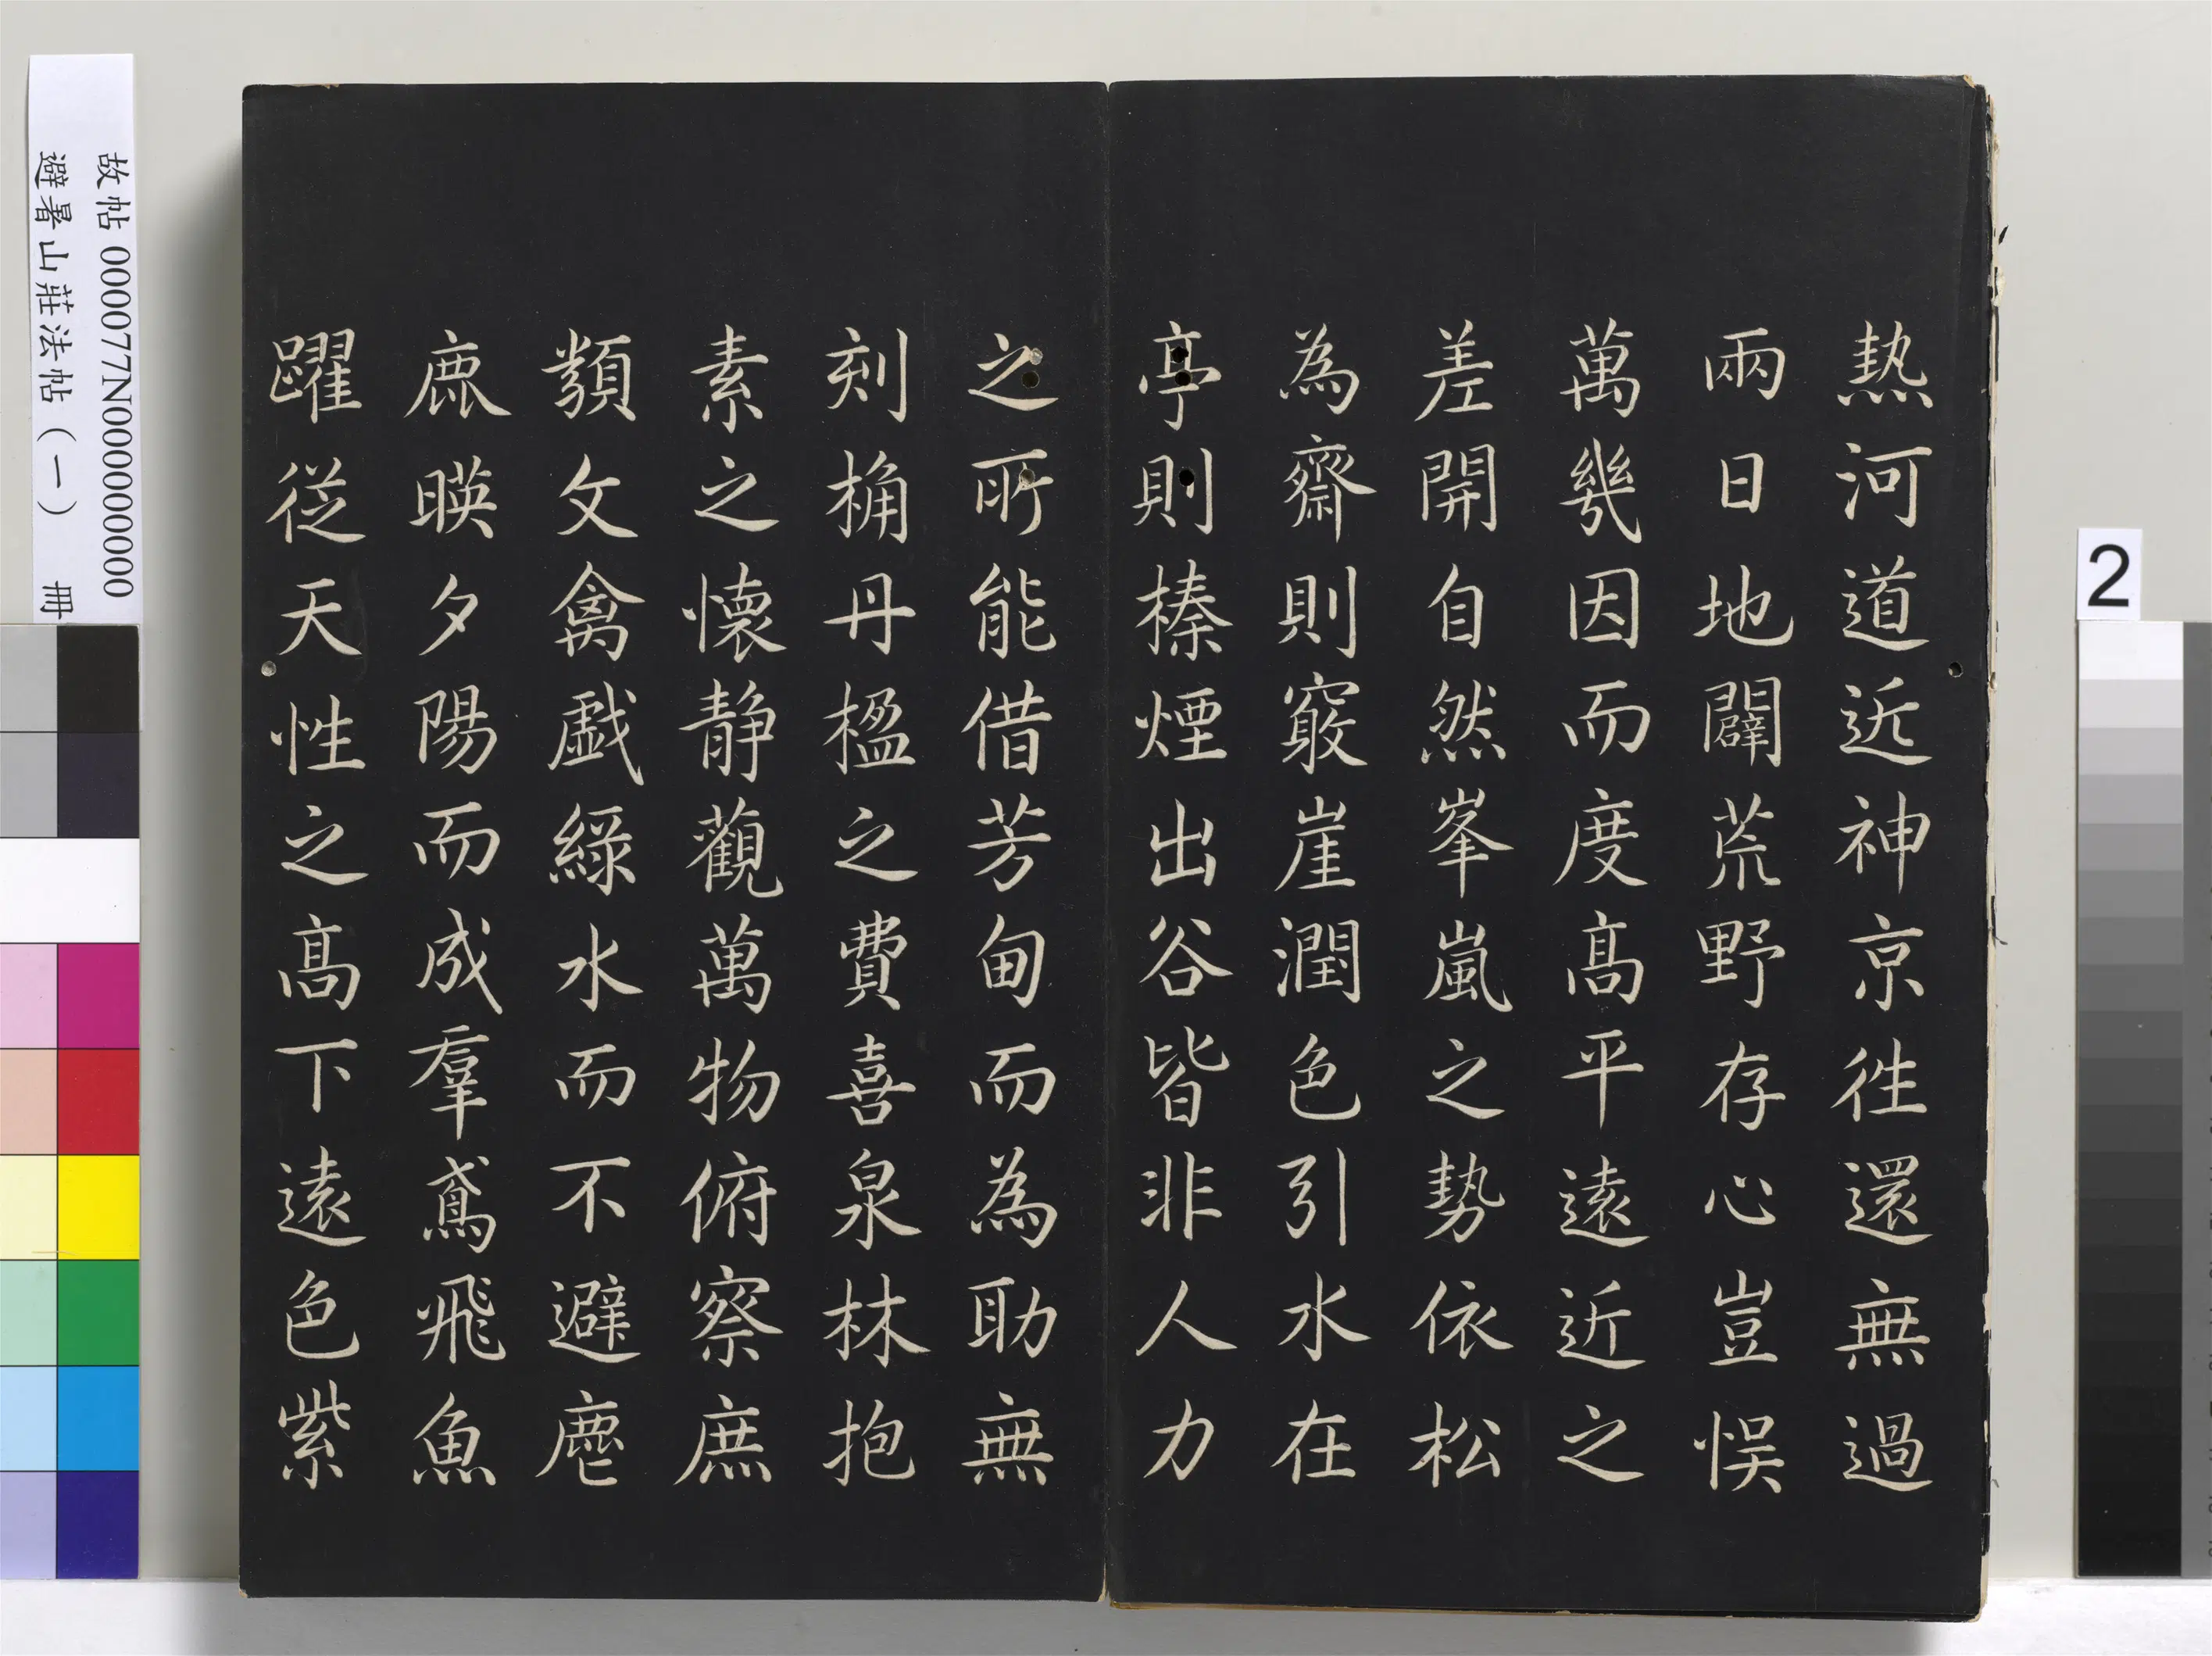 熱河道近神京往還無過
兩日地闢荒野存心豈悮
萬幾因而度高平遠近之
差開自然峯嵐之勢依松
為齋則竅崖潤色引水在
亭則榛煙出谷皆非人力
之所能借芳甸而為助無
刻桷丹楹之費喜泉林抱
素之懷静觀萬物俯察庶
類文禽戯綠水而不避麀
鹿暎夕陽而成羣鳶飛魚
躍從天性之高下遠色紫
故帖 000077N000000000
避暑山莊法帖（一） 冊
2